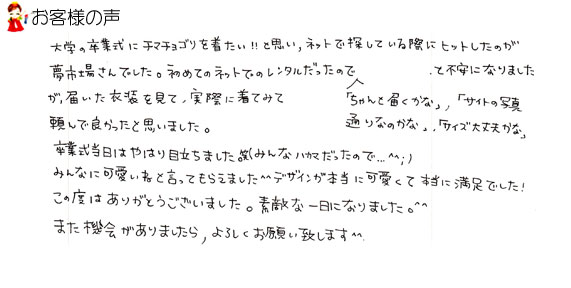 お客様の声
大学の卒業式にチマチョゴリを着たい!!と思い,ネットで探している際にヒットしたのが
夢市場さんでした。初めてのネットでのレンタルだったので
「ちゃんと届くかな」,「サイトの写真
通りなのかな」,「サイズ大丈夫かな」
、と不安になりました
が,届いた衣装を見て,実際に着てみて
頼んで良かったと思いました。
卒業式当日はやはり目立ちました笑(みんなハカマだったので…^^;)
みんなに可愛いねと言ってもらえました^^デザインが本当に可愛くて本当に満足でした!
この度はありがとうございました。素敵な一日になりました。^^
また機会がありましたら,よろしくお願い致します^^